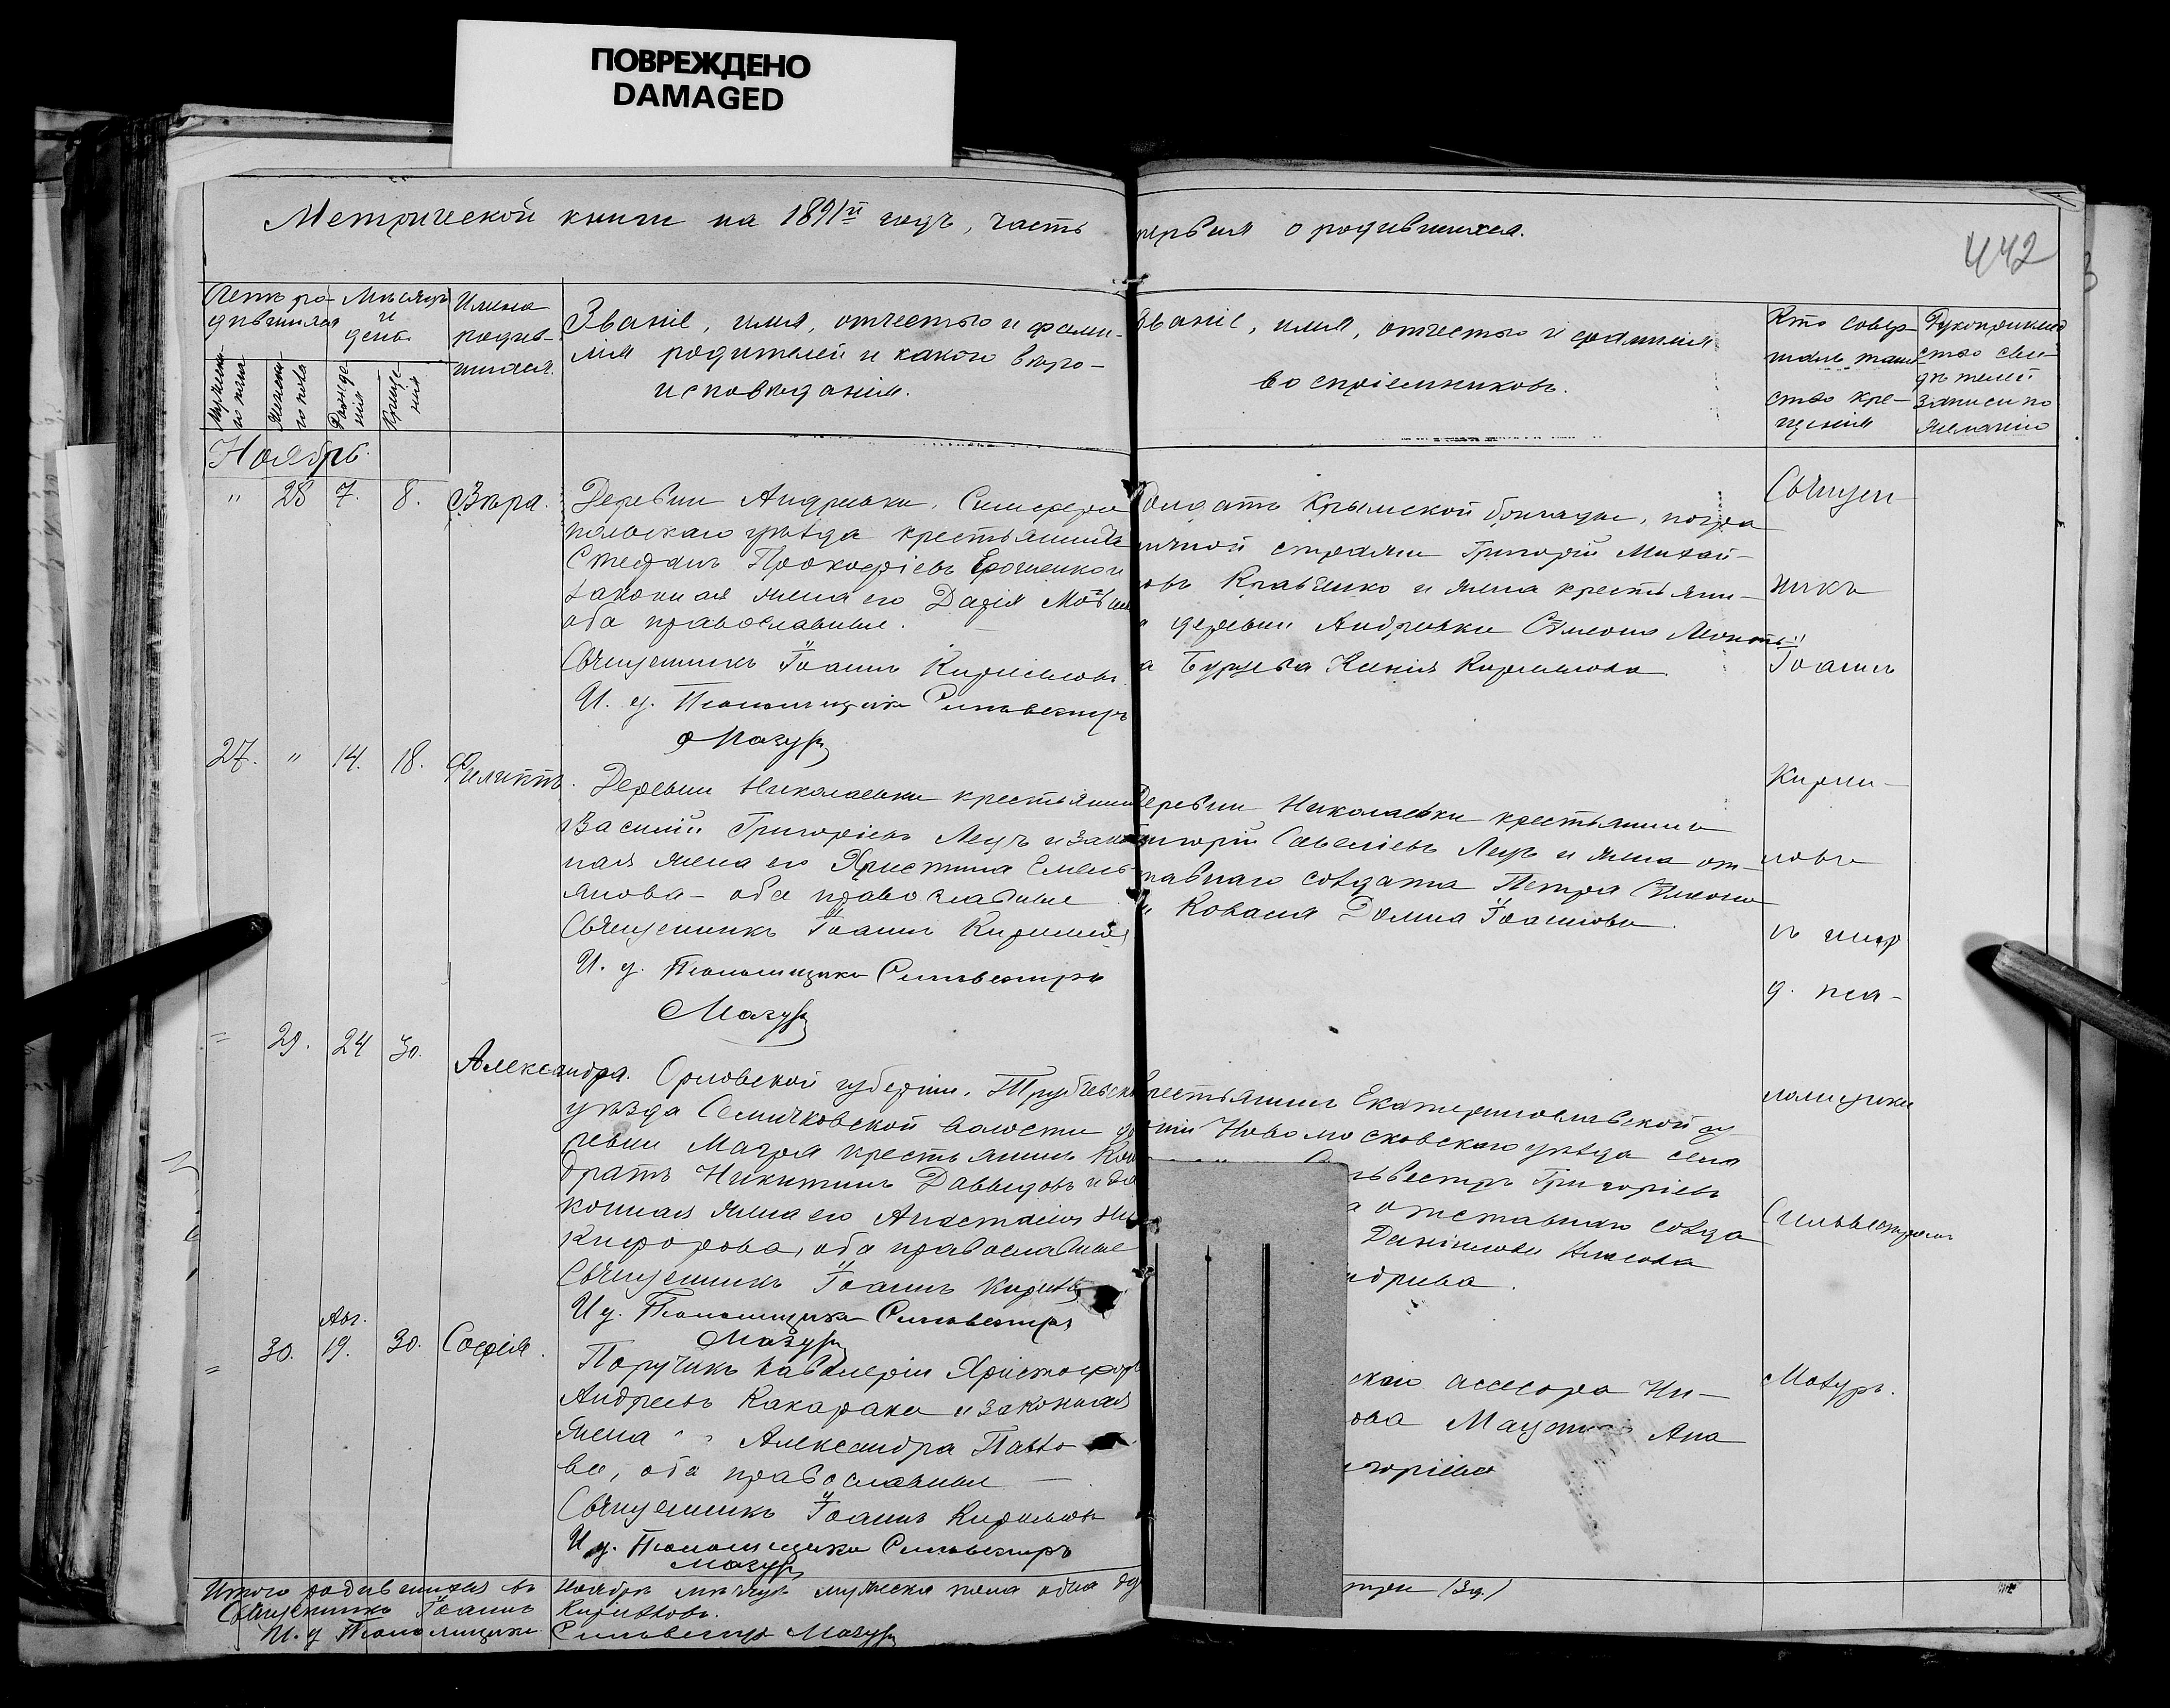 ПОВРЕЖДЕНО
DAMAGED
Метрической книги на 1891й годъ, часть
первая о родившихся.
442
Счетъ ро-
дившихся
Мѣсяцъ
и
день
Имена
родив-
шихся.
Мужеска-
го пола
Женска-
го пола
Рожде-
нія
Креще-
нія
Званіе, имя, отчество и фами-
лія родителей и какого вѣро-
исповѣданія.
Званіе, имя, отчество и фамилія
воспріемниковъ.
Кто совер-
шалъ таин-
ство кре-
щенія
Рукоприклад
ство сви-
дѣтелей
записи по
желанію
Ноябрь.
" 28 7. 8. Вѣра.
Деревни Андреевки, Симферо
польскаго уѣзда крестьянинъ
Стефанъ Прокофіевъ Ерошенко и
законная жена его Дарія
оба православные.
Священникъ Іоаннъ Кирилловъ.
И. д. Псаломщика Сильвестръ
Мазуръ
Солдатъ Крымской бригады, погра
ничной стражи Григорій Михай-
овъ Кравченко и жена крестьяни-
деревни Андреевки Симеона Леонть
а Бурцева Ксенія Кириллова.
27. " 14. 18. Филиппъ.
Деревни Николаевки крестьянинъ
Василій Григоріевъ Лецъ и закон
ная жена его Христина Емель
янова - оба православные
Священникъ Іоаннъ Кирилловъ
И. д. Псаломщика Сильвестръ
Мазуръ
Деревни Николаевки крестьянинъ
игорій Савеліевъ Лецъ и жена от-
тавнаго солдата Петра
Коваля Домна Іоаннова.
= 29. 24 30. Александра.
Орловской губерніи, Трубчевск
уѣзда Семячковской волости де
ревни Магоя крестьянинъ Кон
дратъ Никитинъ Давыдовъ и за
конная жена его Анастасія Ни
кифорова, оба православные
Священникъ Іоаннъ Кирилл
И д. Псаломщика Сильвестръ
Мазуръ
Крестьянинъ Екатеринославской гу
рніи Новомосковскаго уѣзда села
львестръ Григоріевъ
а отставнаго солда
Данилова
ндреева.
Авг.
= 30. 19. 30. Софія.
Поручикъ кавалеріи Христофоръ
Андреевъ Какараки и законная
жена Александра Павло
ва, оба православные
Священникъ Іоаннъ Кирилловъ
И д. Псаломщика Сильвестръ
Мазуръ
скаго ассесора Ни-
ова Ана
игоріева
Священ-
никъ
Іоаннъ
Кирил-
ловъ
съ и
д. пса-
ломщика
Сильвестромъ
Мазуръ.
Итого родившихся въ Ноябрѣ мѣсяцѣ мужеска пола
три (3д.)
Священникъ Іоаннъ Кирилловъ.
И. д Псаломщика Сильвестръ Мазуръ